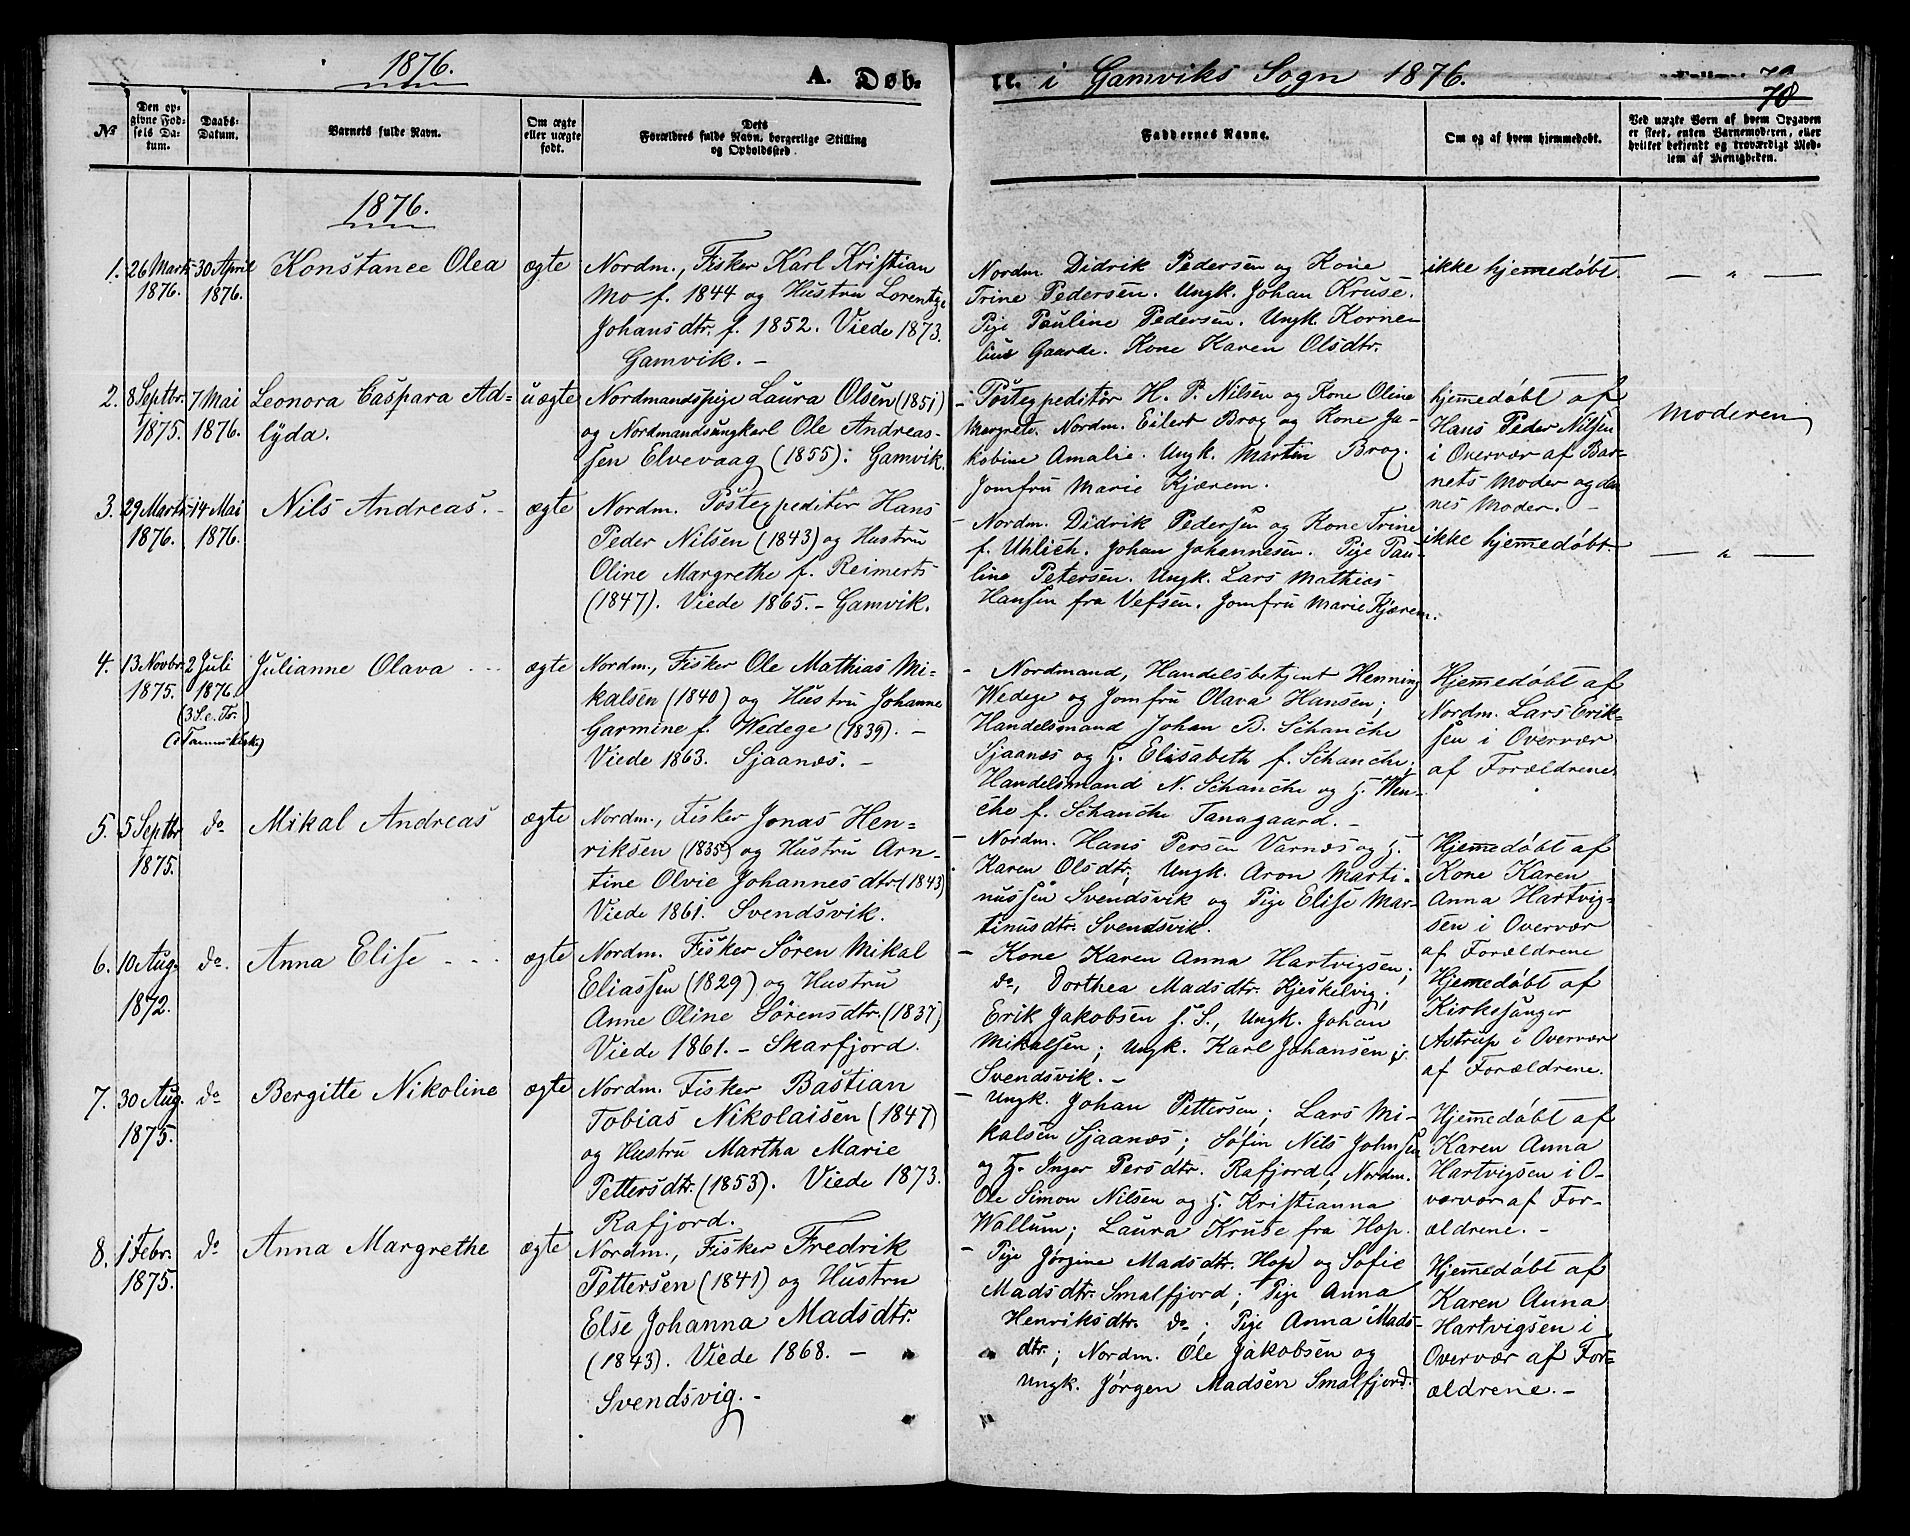 1876.
A. Døb-
te. i Gamviks Sogn 1876.
70
№
Den op-
givne Fød-
sels Da-
tum.
Daabs-
Datum.
Barnets fulde Navn.
Om ægte
eller uægte
født.
Dets
Forældres fulde Navn, borgerlige Stilling
og Opholdssted.
Faddernes Navne.
Om og af hvem hjemmedøbt.
Ved uægte Børn af hvem Opgaven
er skeet, enten Barnemoderen, eller
hvilket bekjendt og troværdigt Med-
lem af Menigheden.
1876.
1. 26 Marts 30 April Konstance Olea ægte
1876. 1876.
Nordm., Fisker Karl Kristian
Mo f. 1844 og Hustru Lorentze
Johansdtr. f. 1852. Viede 1873.
Gamvik. –
Nordm. Didrik Pedersen og Kone
Trine Pedersen. Ungk. Johan Kruse.
Pige Pauline Pedersen. Ungk. Korne-
lius Gaarde. Kone Karen Olsdtr.
ikke hjemedøbt.
— " —
2. 8 Septbr. 7 Mai Leonora Caspara Ad- uægte
1875. 1876. lyda.
Nordmandspige Laura Olsen (1851)
og Nordmandsungkarl Ole Andreas-
sen Elvevaag (1855): Gamvik.
– Postexpeditör H. P. Nilsen og Kone Oline
Margrete. Nordm. Eilert Brox og Kone Ja-
kobine Amalie. Ungk. Martin Brox.
Jomfru Marie Kjærem.
hjemedøbt af
Hans Peder Nilsen
i Overvær af Bar-
nets Moder og den-
nes Moder. –
Moderen
3. 29 Marts 14 Mai Nils Andreas. – ægte
1876. 1876.
Nordm. Postexpeditör Hans
Peder Nilsen (1843) og Hustru
Oline Margrethe f. Reimerts
(1847). Viede 1865. – Gamvik.
– Nordm. Didrik Pedersen og Kone Trine
f. Uhlich. Johan Johannesen. Pige Pau-
line Petersen. Ungk. Lars Mathias
Hansen fra Vefsen. Jomfru Marie Kjærem.
ikke hjemedøbt.
— " —
4. 13 Novbr. 2 Juli Julianne Olava - - ægte
1875. 1876.
(3 S. e. Tr.)
(i Tanens Kirke)
Nordm., Fisker Ole Mathias Mi-
kalsen (1840) og Hustru Johanne
Garmine f. Wedege (1839). –
Viede 1863. Sjaanæs. –
– Nordmand, Handelsbetjent Henning
Wedege og Jomfru Olava Hansen;
Handelsmand Johan B. Schanche
Sjaanæs og H. Elisabeth f. Schanche;
Handelsmand N. Schanche og H. Wen-
che f. Schanche Tanagaard. –
Hjemedøbt af
Nordm. Lars Erik-
sen i Overvær
af Forældrene
5. 5 Septbr. do Mikal Andreas ægte
1875.
Nordm., Fisker Jonas Hen-
riksen (1835) og Hustru Arn-
tine Olvie Johannesdtr. (1843)
Viede 1861. Svendsvik.
– Nordm. Hans Persen Varnæs og H.
Karen Olsdtr; Ungk. Aron Marti-
nussen Svendsvik og Pige Elise Mar-
tinusdtr. Svendsvik.
Hjemedøbt af
Kone Karen
Anna Hartvig-
sen i Overvær
af Forældrene
6. 10 Aug. do. Anna Elise - - - ægte
1872.
Nordm. Fisker Sören Mikal
Eliassen (1829) og Hustru
Anne Oline Sörensdtr. (1837)
Viede 1861. – Skarfjord.
– Kone Karen Anna Hartvigsen;
do, Dorthea Madsdtr. Kjeskelvig;
Erik Jakobsen s. S., Ungk. Johan
Mikalsen; Ungk. Karl Johansen
Svendsvik. –
Hjemedøbt af
Kirkesanger
Astrup i Overvær
af Forældrene.
7. 30 Aug. do Bergitte Nikoline ægte
1875.
Nordm. Fisker Bastian
Tobias Nikolaisen (1847)
og Hustru Martha Marie
Pettersdtr. (1853). Viede 1873.
Rafjord.
– Ungk. Johan Pettersen; Lars Mi-
kalsen Sjaanæs; Søfin Nils Johnsen
og H. Inger Persdtr. Rafjord; Nordm.
Ole Simon Nilsen og H. Kristianna
Wallum; Laura Kruse fra Hop.
Hjemedøbt af
Karen Anna
Hartvigsen i O-
vervær af For-
ældrene. –
8. 1 Febr. do Anna Margrethe ægte
1875.
Nordm., Fisker Fredrik
Pettersen (1841) og Hustru
Else Johanna Madsdtr.
(1843). Viede 1868. –
Svendsvig. –
– Pige Jørgine Madsdtr. Hop og Sofie
Madsdtr. Smalfjord; Pige Anna
Henriksdtr. do; Pige Anna Mads-
dtr.; Nordm. Ole Jakobsen og
Ungk. Jørgen Madsen Smalfjord.
Hjemedøbt af
Karen Anna
Hartvigsen i
Overvær af For-
ældrene. –